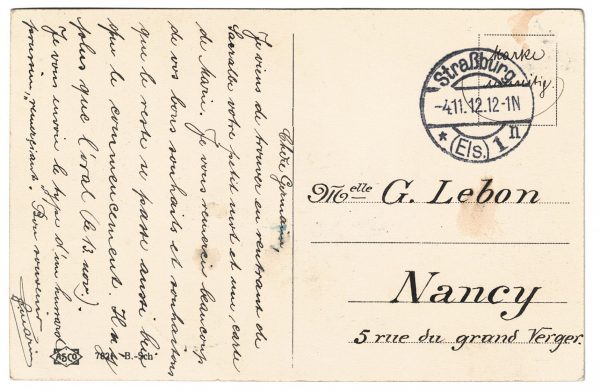 Chère Germaine,
Je viens de trouver en rentrant de
votre petit mot et une carte
de Marie. Je vous remercie beaucoup
de vos bons souhaits et souhaitons
que le reste se passe aussi bien
que le commencement. Il n'y
plus que l'oral (le 13 nov).
Je vous envoie le type d'un hussard
prussien, "renseignant". Bon souvenir
ASCO
7824 -B.-Sch
Marke
Straßburg
-4.11.12.12-1N
* (Els.) 1 n
Melle G. Lebon
Nancy
5 rue du grand Verger.